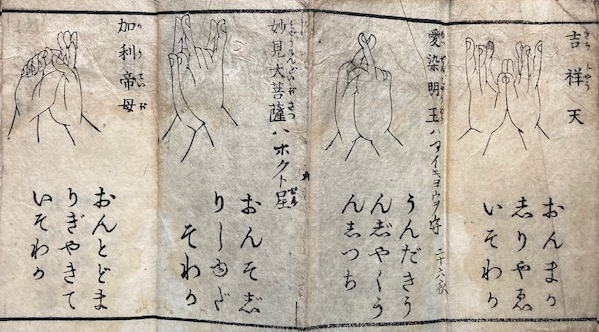 吉祥天
おんまか
しりやゑ
いそわか
愛染明王ハアイキヨウヲ守
二十六夜
うんだきう
んじやくう
んしつち
妙見大菩薩ハホクト星
おんそじ
そわか
加利帝母
おんとどま
りぎやきて
いそわか